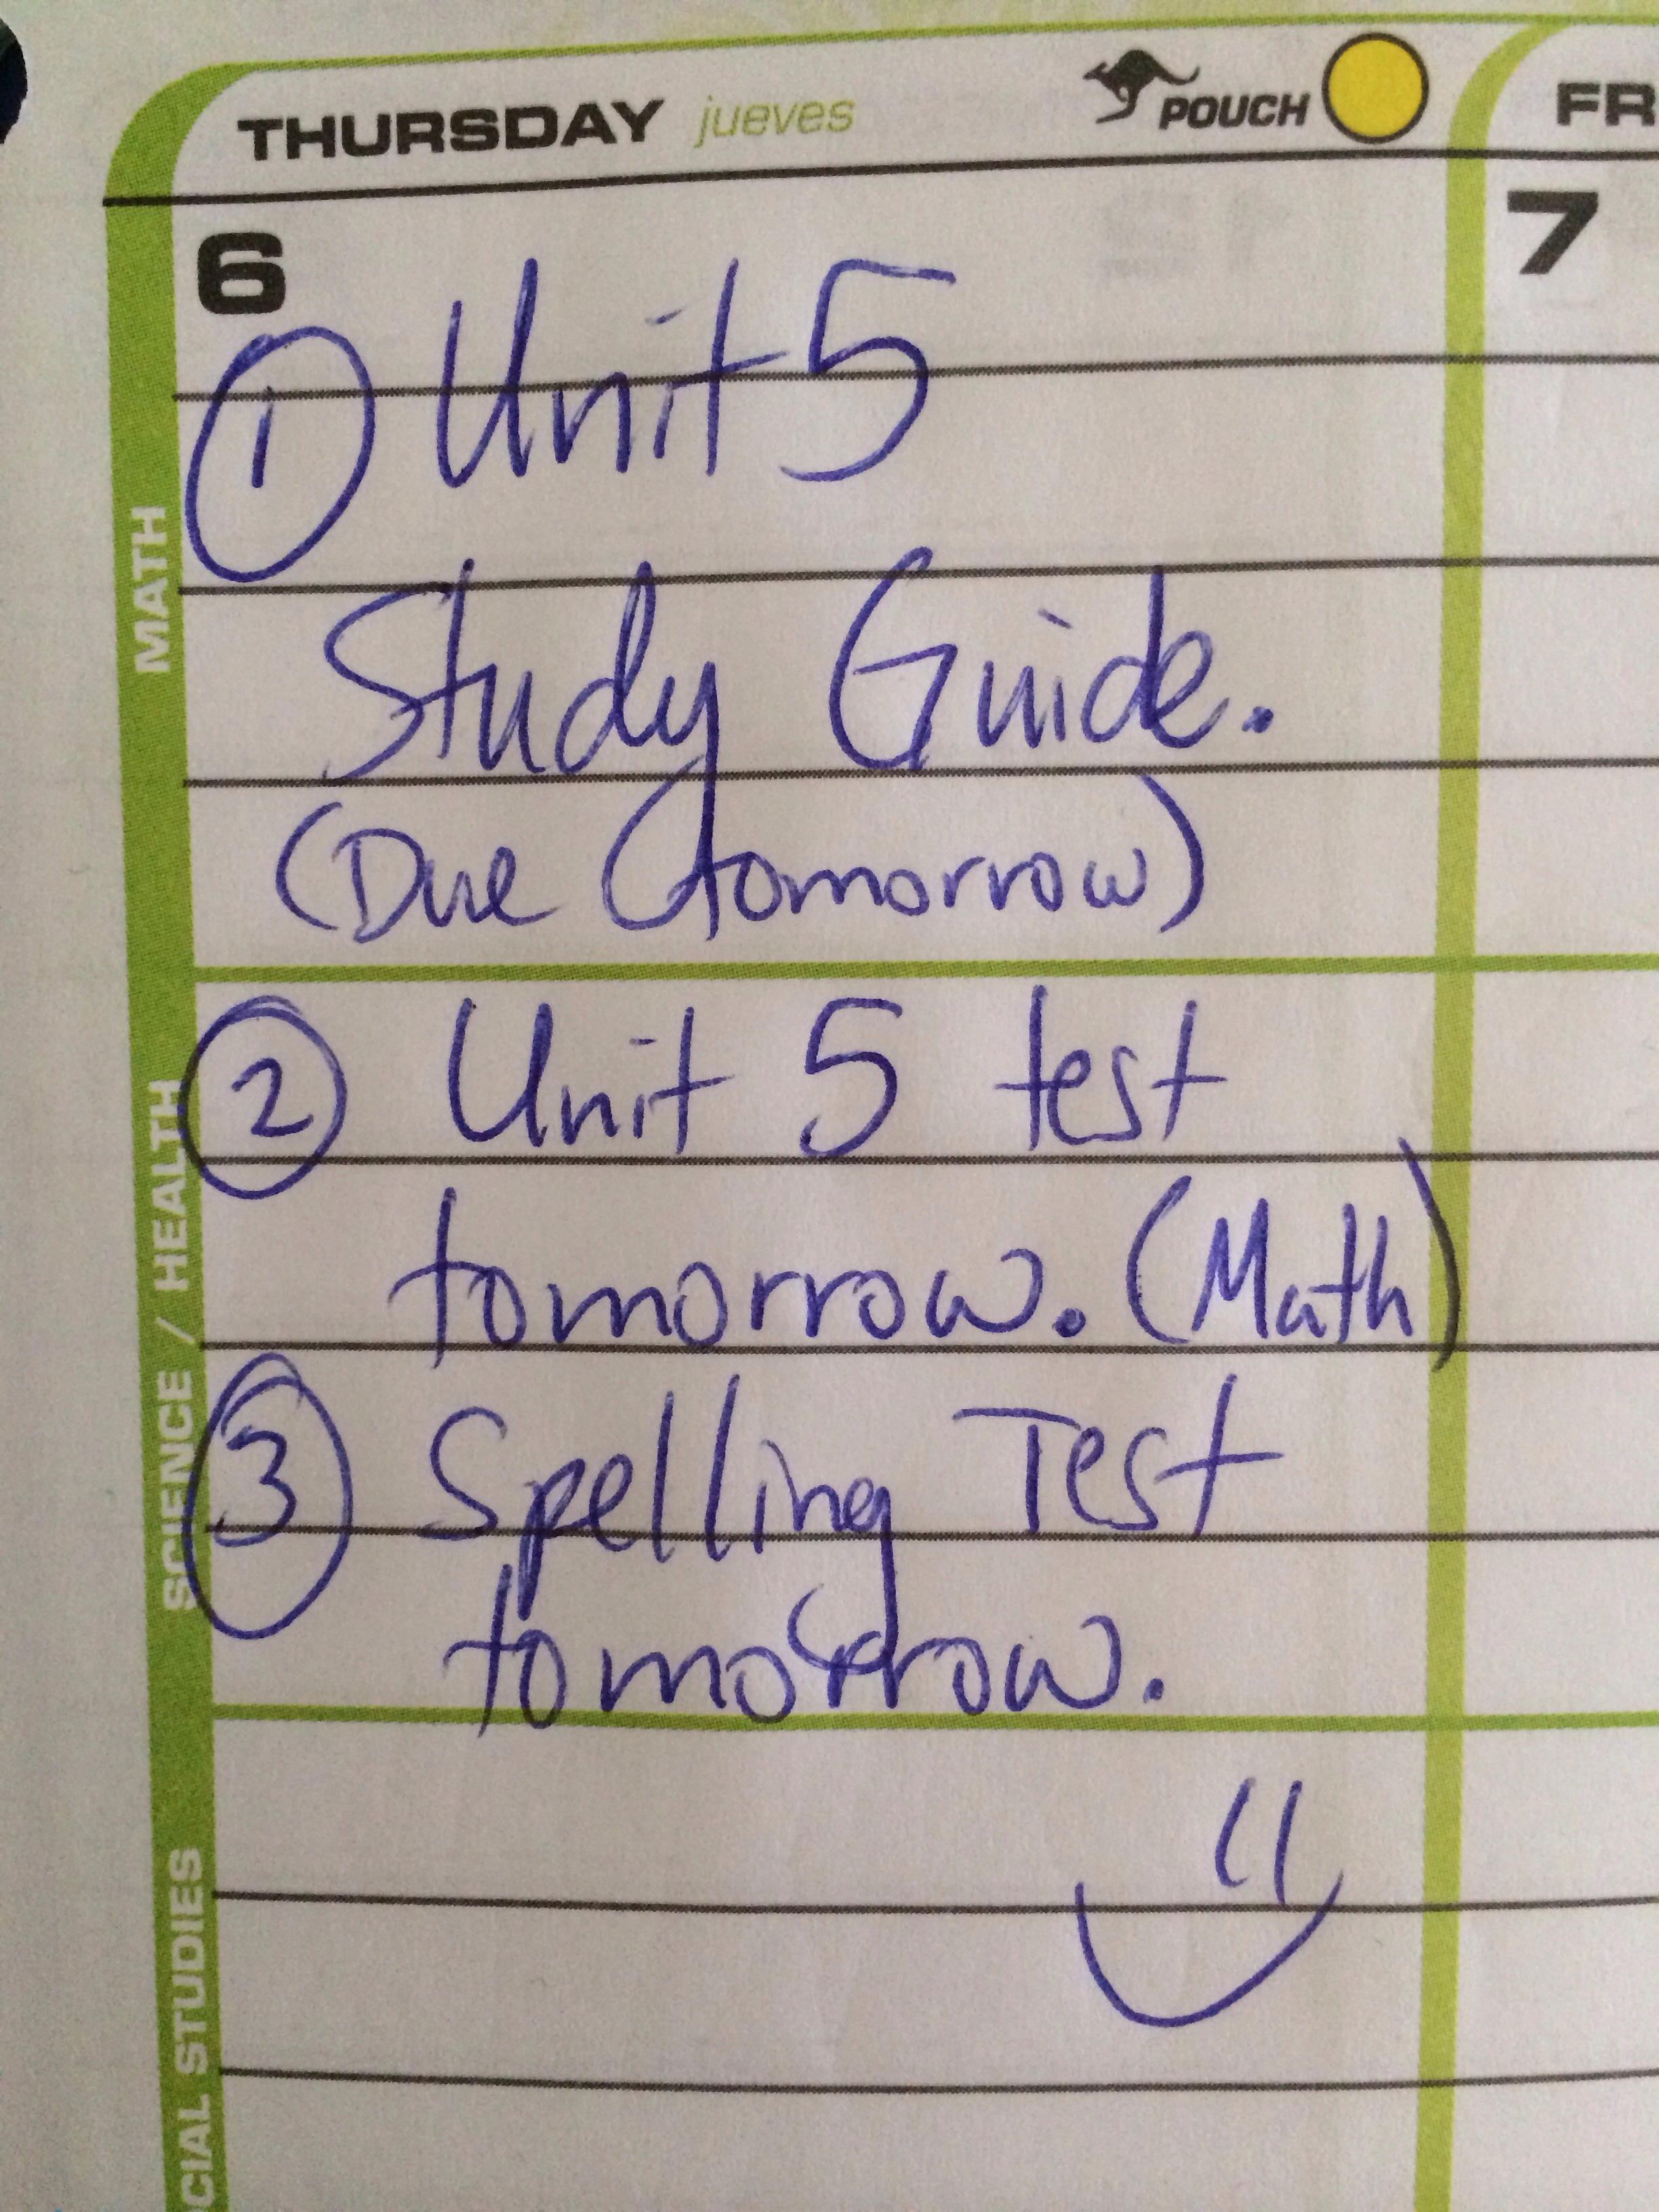 THURSDAY jueves POUCH FR
6 7
① Unit 5
Study Guide.
(Due tomorrow)
② Unit 5 test
tomorrow. (Math)
③ Spelling Test
tomorrow.
MATH
SCIENCE / HEALTH
CIAL STUDIES